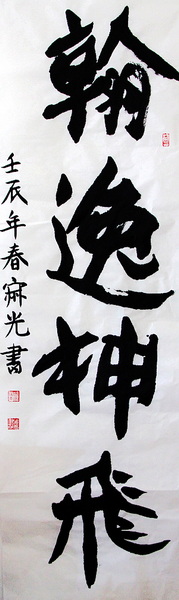 翰逸神飛
壬辰年春寐光書